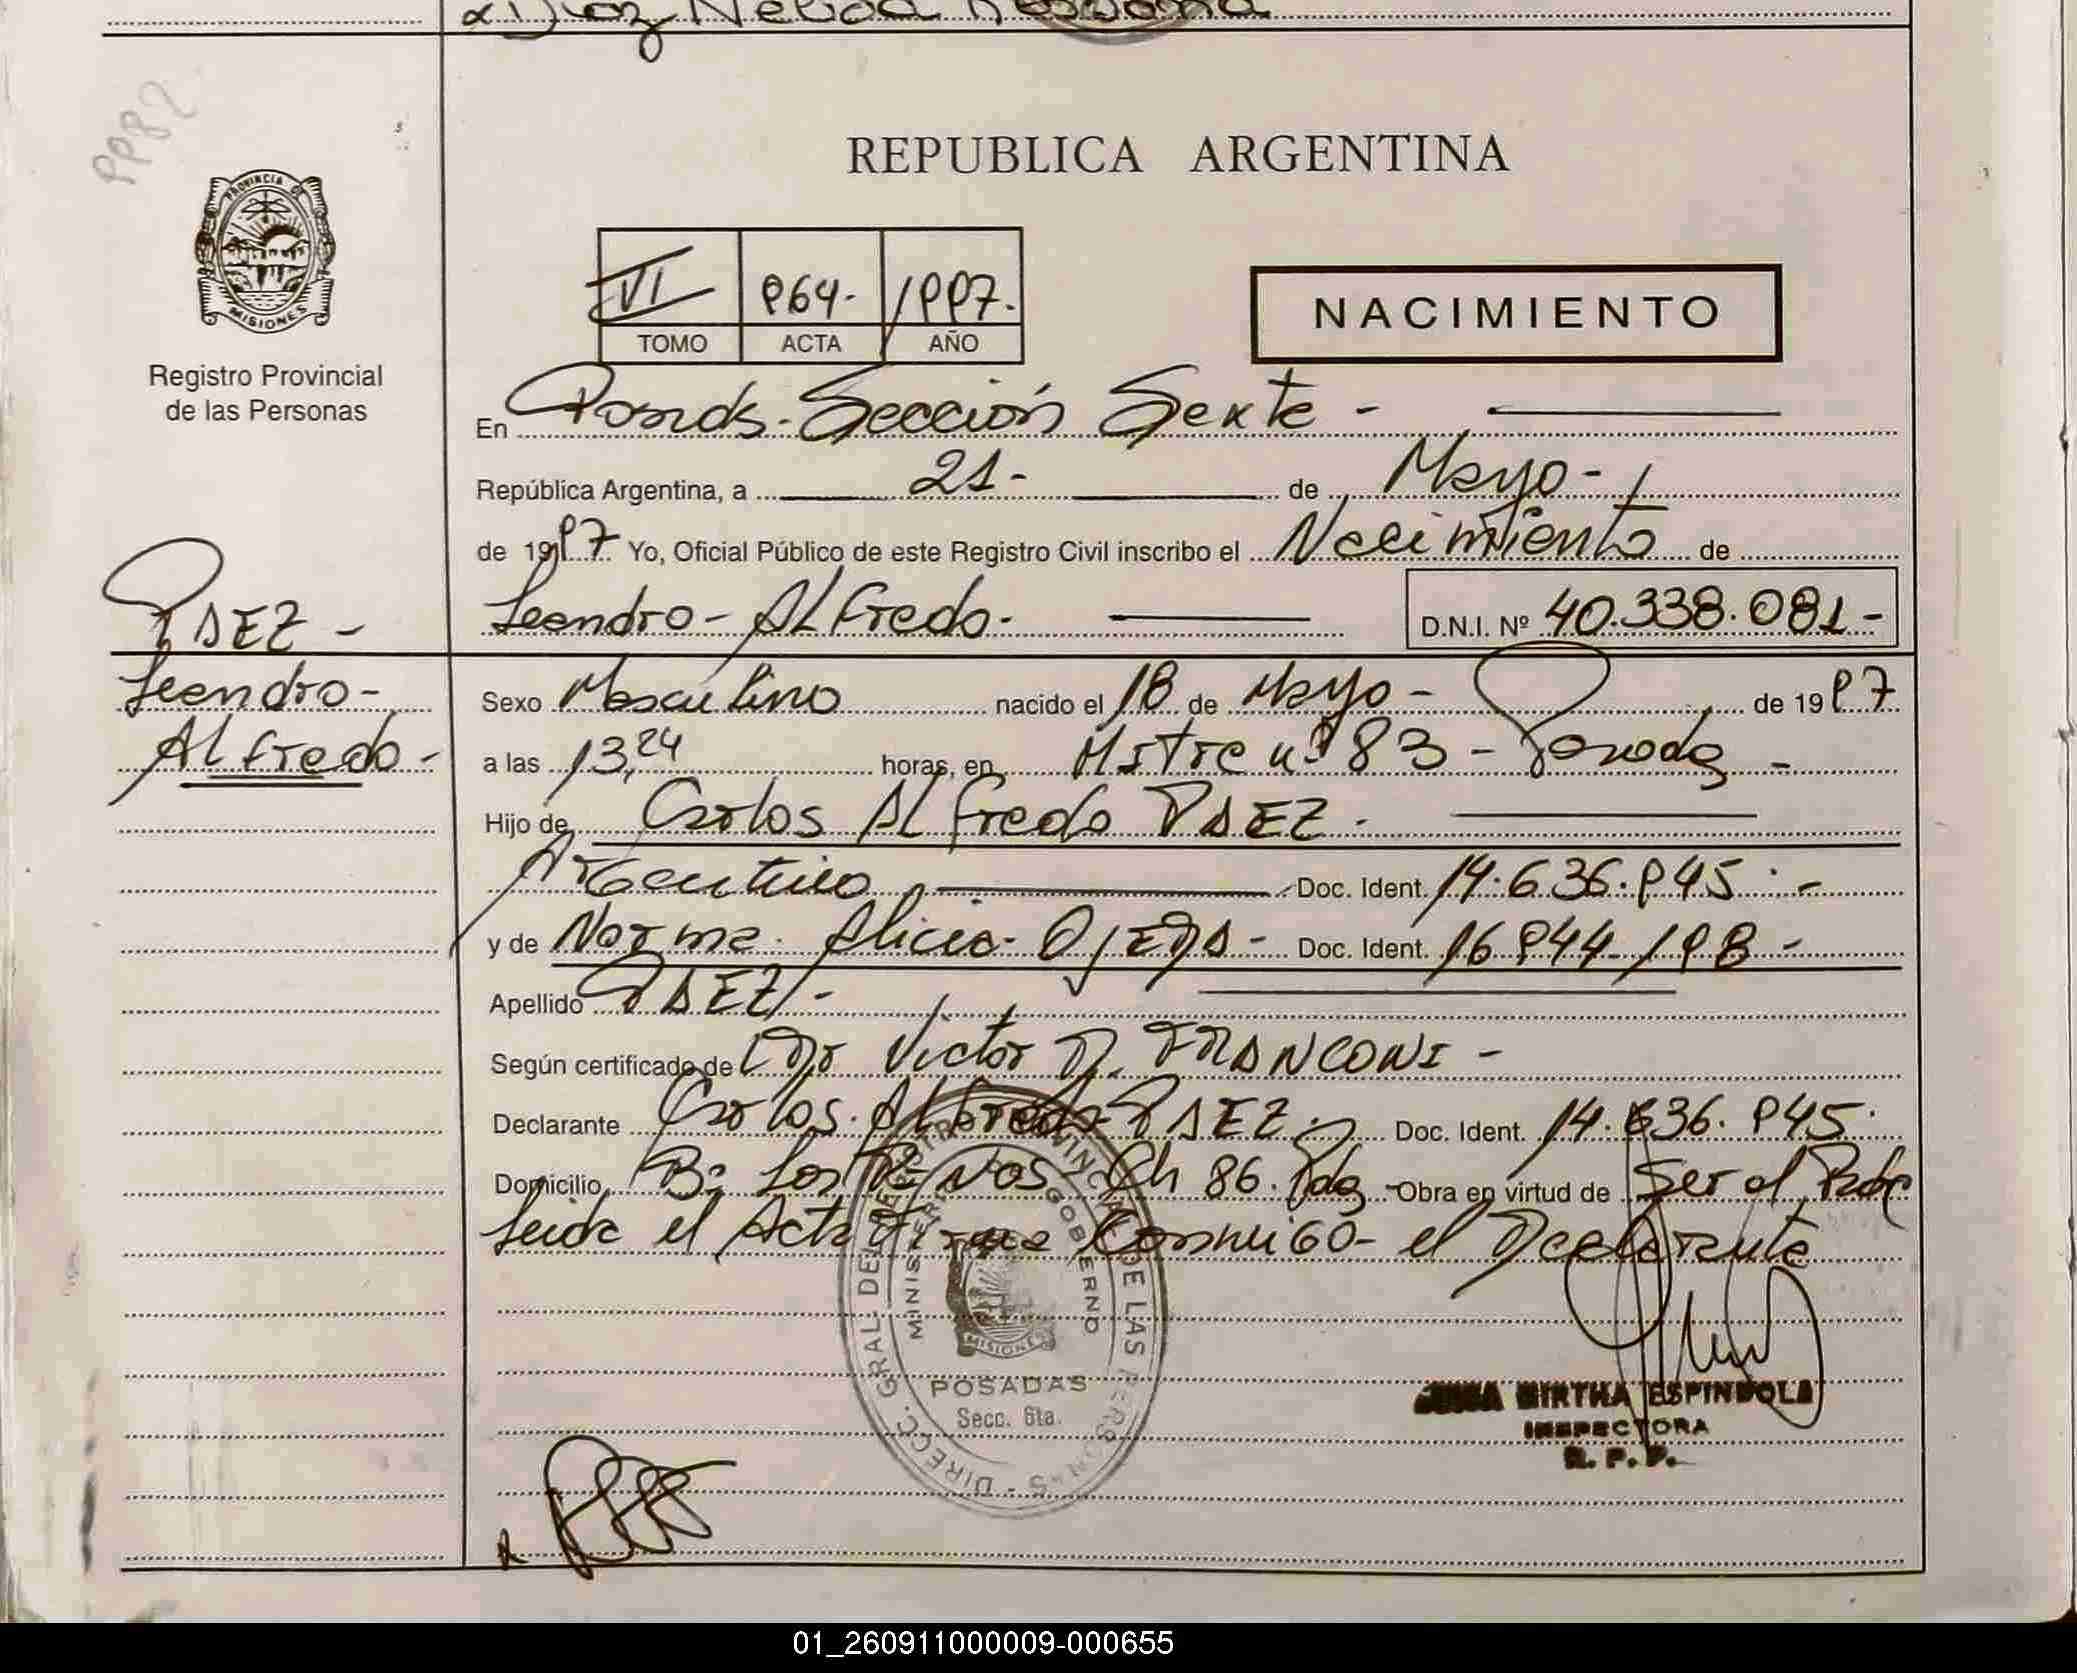 Diaz Nelida Rossana
PP82
PROVINCIA DE
MISIONES
Registro Provincial
de las Personas
REPUBLICA ARGENTINA
VI 964- 1997.
TOMO ACTA AÑO
NACIMIENTO
En Posadas-Sección Sexta -
República Argentina, a 21- de Mayo-
de 1997 Yo, Oficial Público de este Registro Civil inscribo el Nacimiento de
Leandro- ALfredo- D.N.I. Nº 40.338.081-
PAEZ -
Leandro-
ALfredo-
Sexo Masculino nacido el 18 de Mayo- de 1997
a las 13,24 horas, en Mitre nº 83 - Posadas -
Hijo de Carlos ALfredo PAEZ.
Argentino Doc. Ident. 14.636.945.-
y de Norma Alicia OJEDA- Doc. Ident. 16.944.198-
Apellido PAEZ-
Según certificado de Dr Victor FRANCONI-
Declarante Carlos ALfredo PAEZ. Doc. Ident. 14.636.945.
Domicilio Bº Los Pinos Ch 86. Pdas Obra en virtud de Ser el Padre
Leida el Acta Firma Conmigo- el Declarante
DIRECC. GRAL DEL REGISTRO PROVINCIAL DE LAS PERSONAS
MINISTERIO GOBIERNO
MISIONES
POSADAS
Secc. 6ta.
MIRTHA ESPINDOLA
INSPECTORA
R. P. P.
01_260911000009-000655